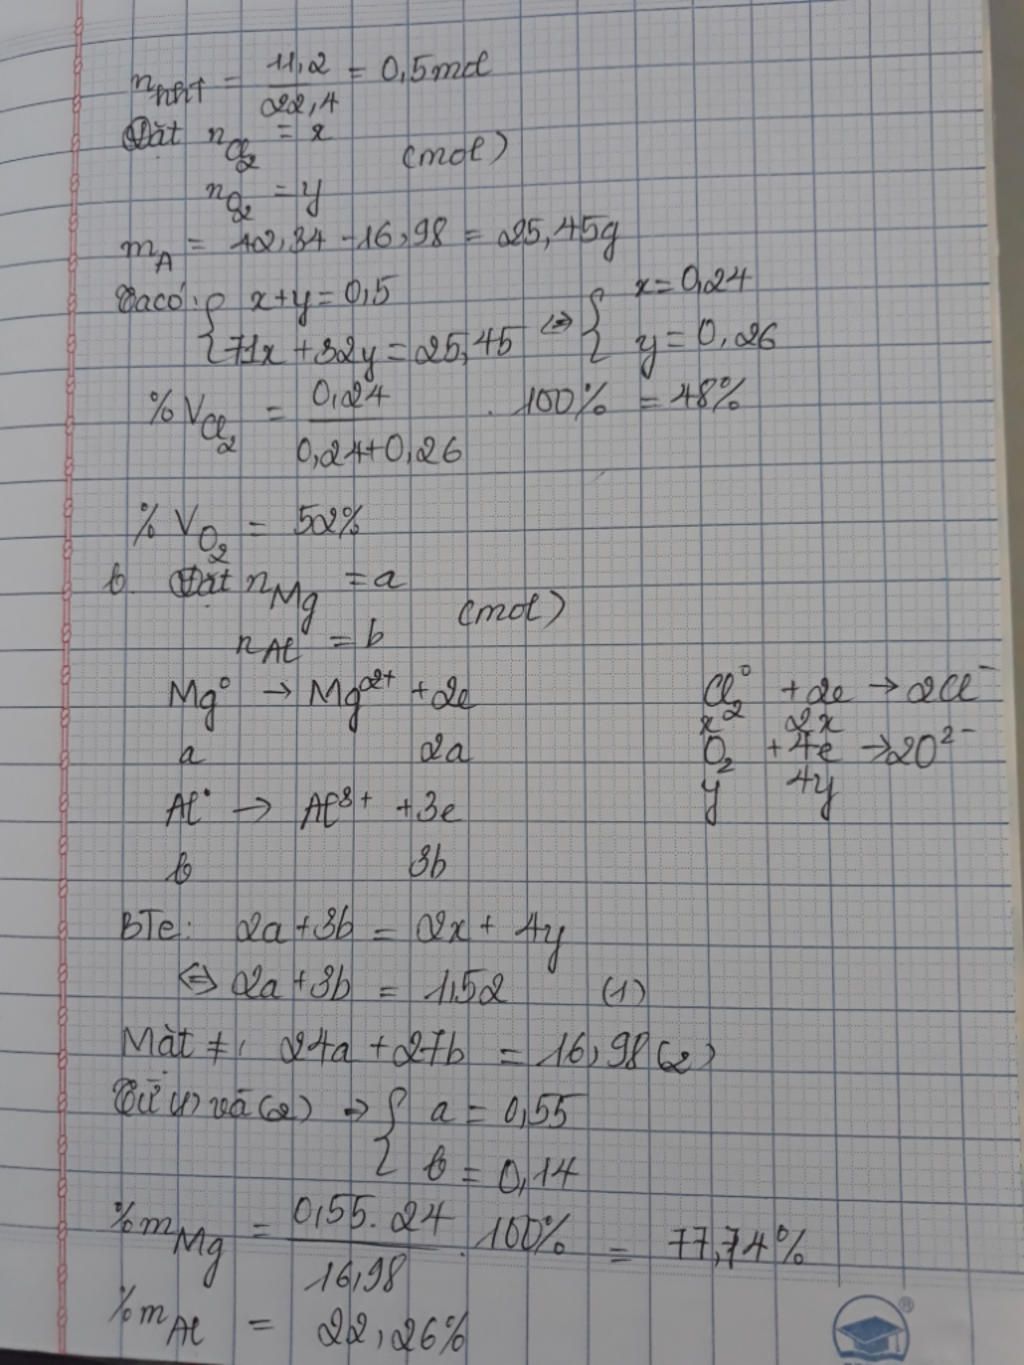 n hht = 11,2 / 22,4 = 0,5 mol
Đặt n Cl2 = x (mol)
n O2 = y
m A = 42,34 - 16,98 = 25,45g
Ta có: { x + y = 0,5 ⇔ { x = 0,24
71x + 32y = 25,45 y = 0,26
% V Cl2 = 0,24 / 0,24+0,26 . 100% = 48%
% V O2 = 52%
b. Đặt n Mg = a (mol)
n Al = b
Mg⁰ → Mg²⁺ + 2e Cl₂⁰ + 2e → 2Cl⁻
a 2a x 2x
O₂ + 4e → 2O²⁻
Al⁰ → Al³⁺ + 3e y 4y
b 3b
BTe: 2a + 3b = 2x + 4y
⇔ 2a + 3b = 1,52 (1)
Mặt ≠, 24a + 27b = 16,98 (2)
Từ (1) và (2) → { a = 0,55
b = 0,14
%m Mg = 0,55 . 24 / 16,98 . 100% = 77,74%
%m Al = 22,26%